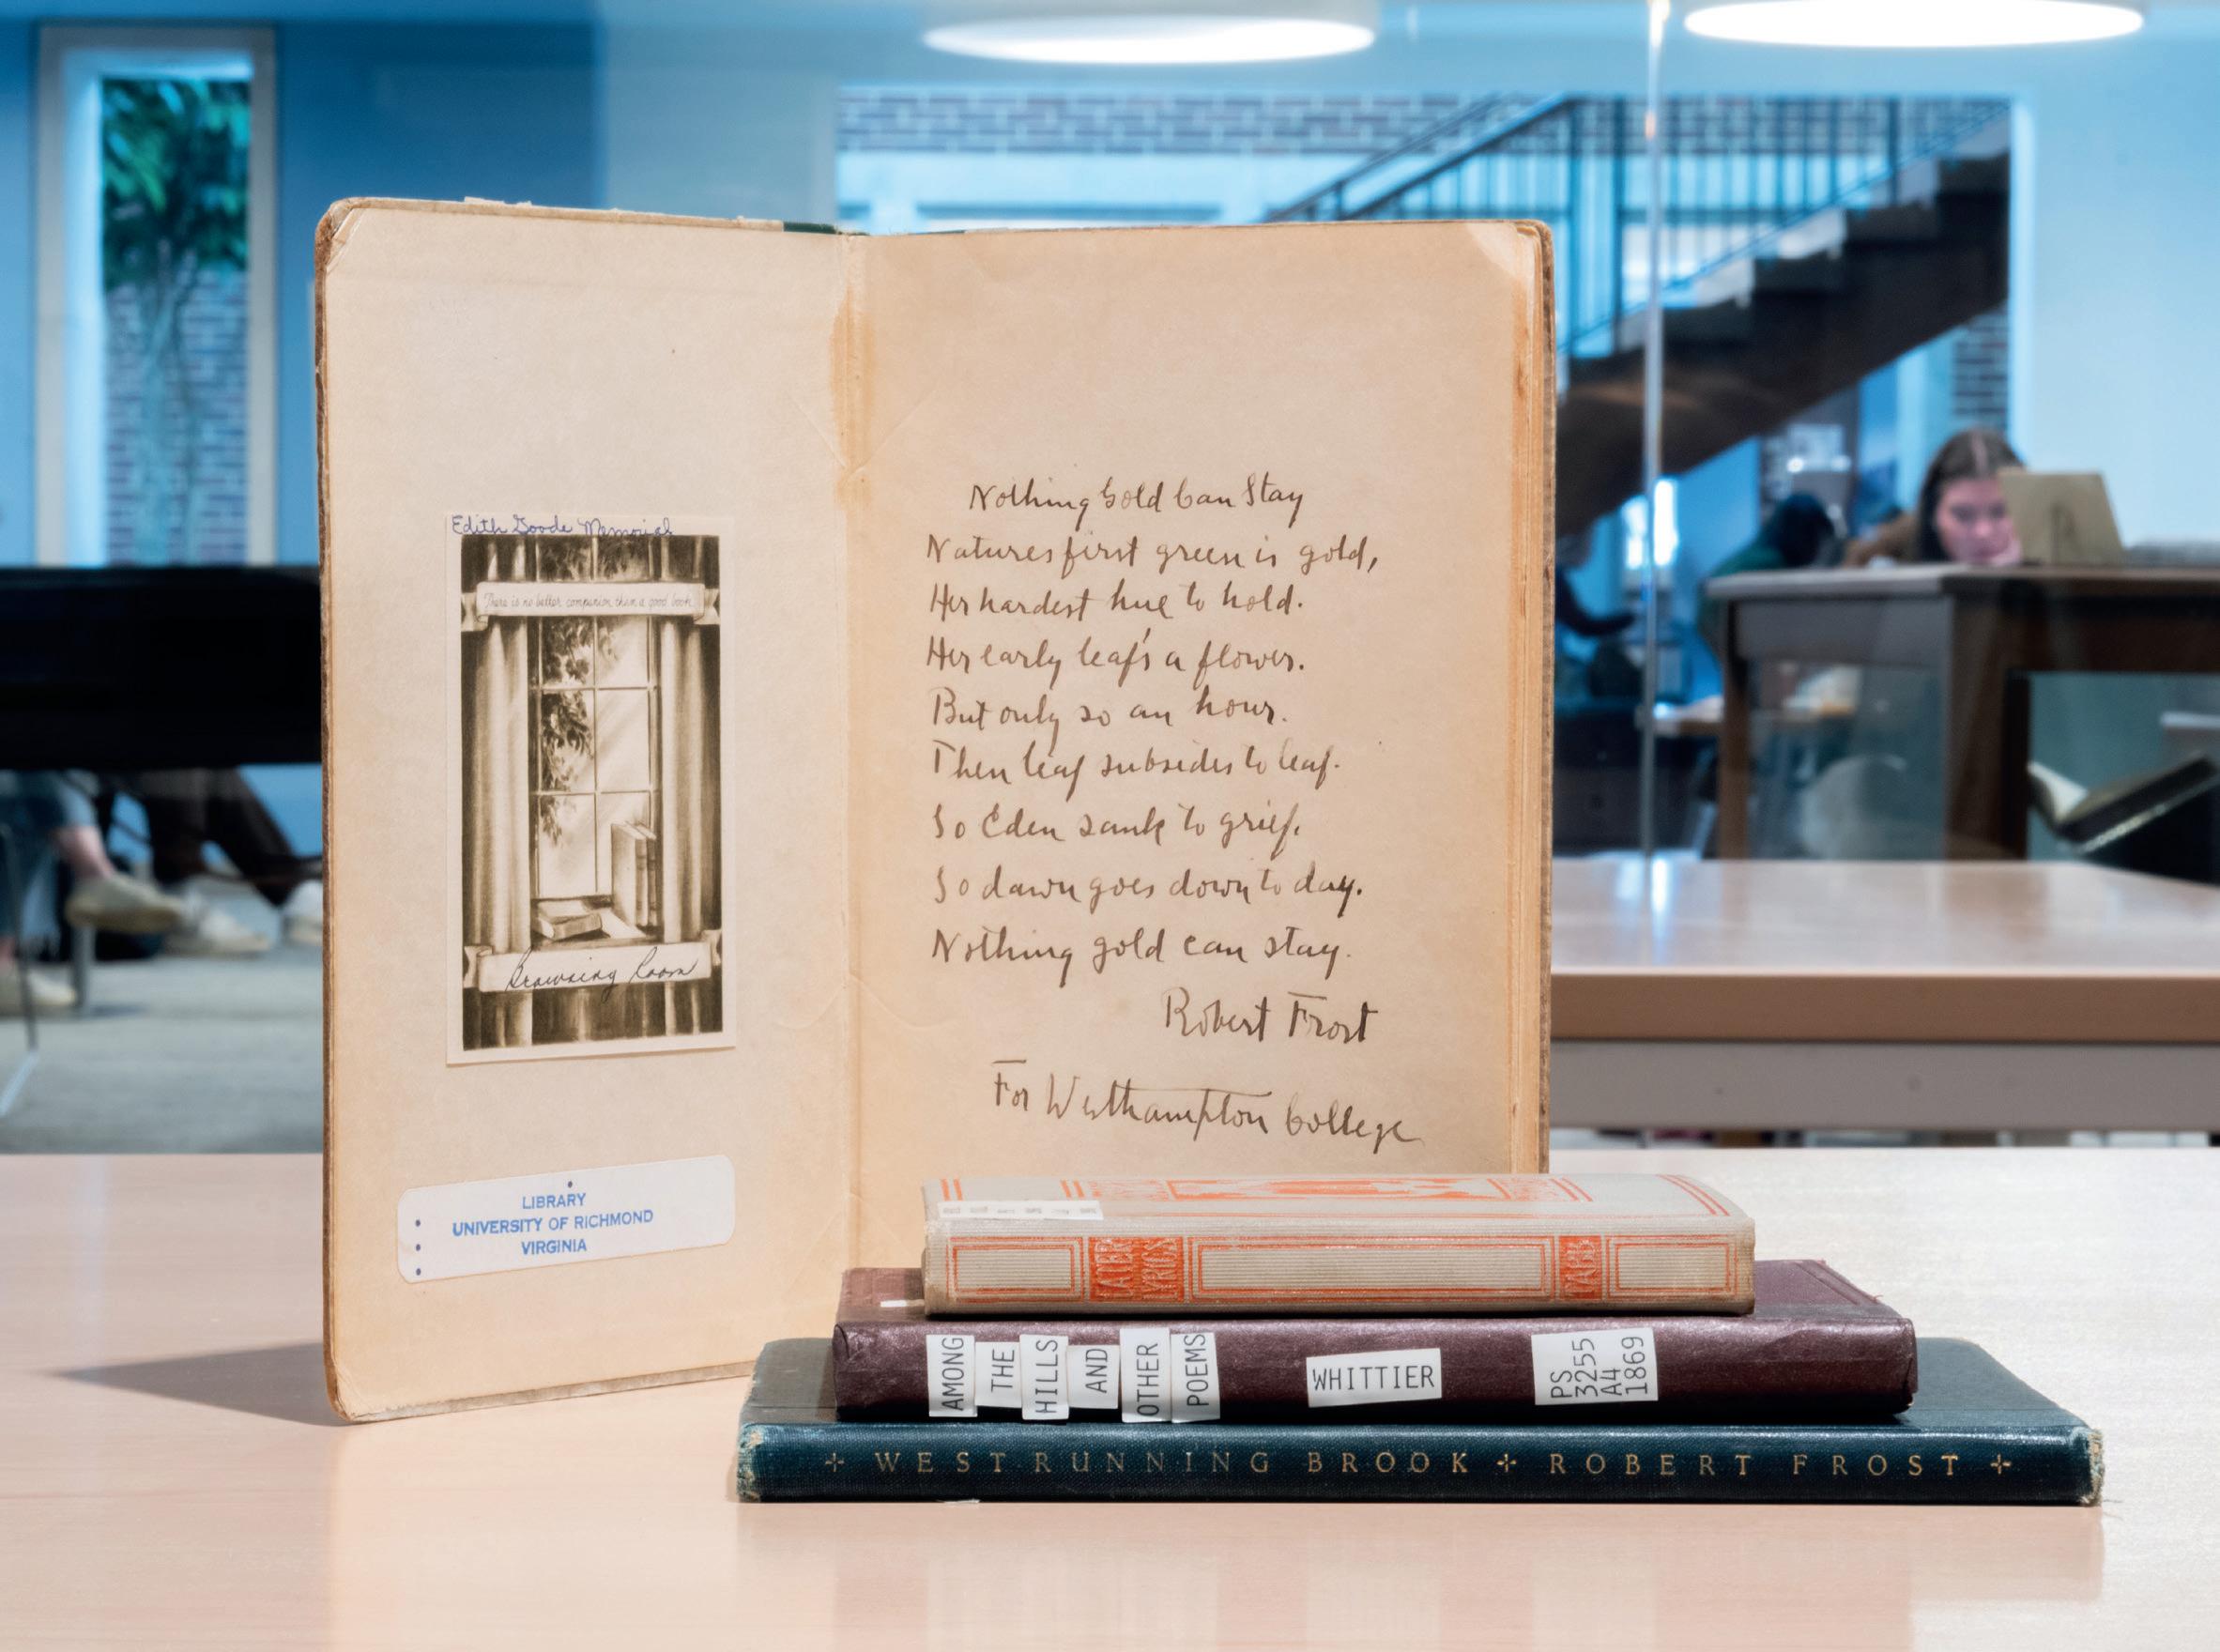 Edith Goode Memorial
There is no better companion than a good book
Browsing Room
LIBRARY
UNIVERSITY OF RICHMOND
VIRGINIA
Nothing Gold Can Stay
Natures first green is gold,
Her hardest hue to hold.
Her early leaf's a flower.
But only so an hour.
Then leaf subsides to leaf.
So Eden sank to grief.
So dawn goes down to day.
Nothing gold can stay.
Robert Frost
For Westhampton College
LATER
LYRICS
TABB
AMONG
THE
HILLS
AND
OTHER
POEMS
WHITTIER
PS
3255
A4
1869
WEST RUNNING BROOK ROBERT FROST